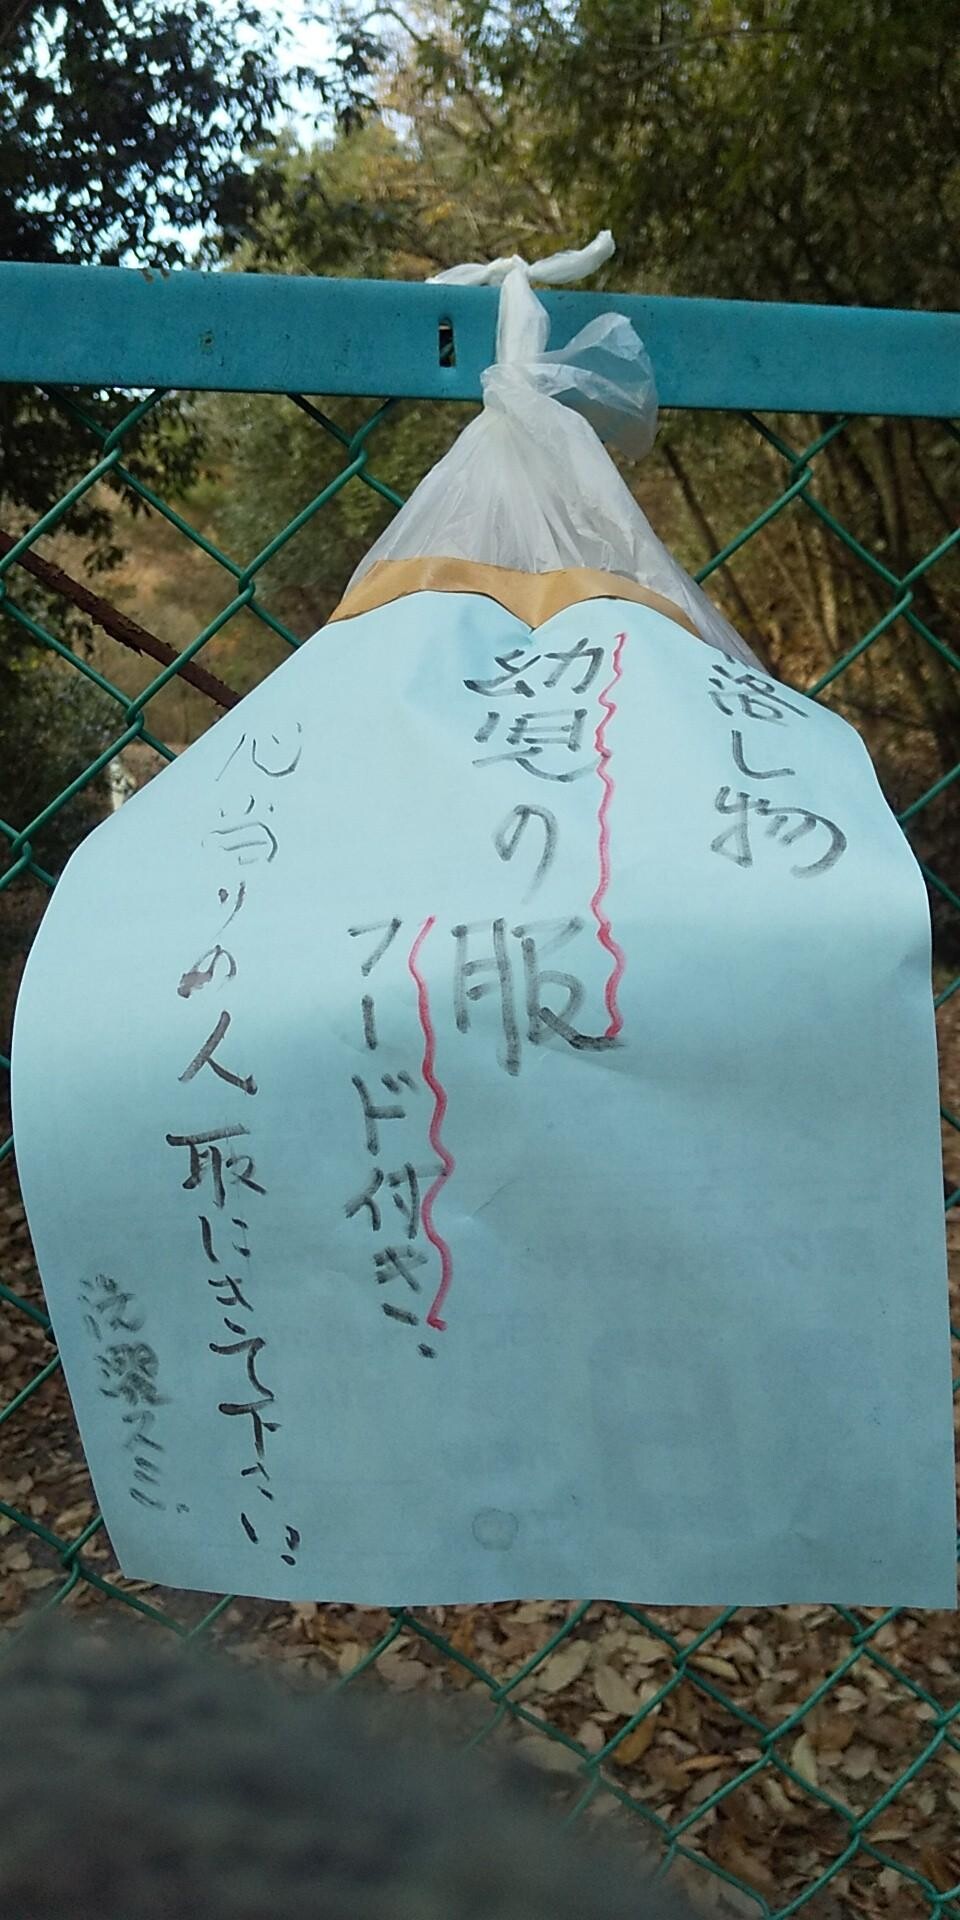 落し物
幼児の服
フード付き!
心当りの人取にきて下さい!
洗濯スミ!